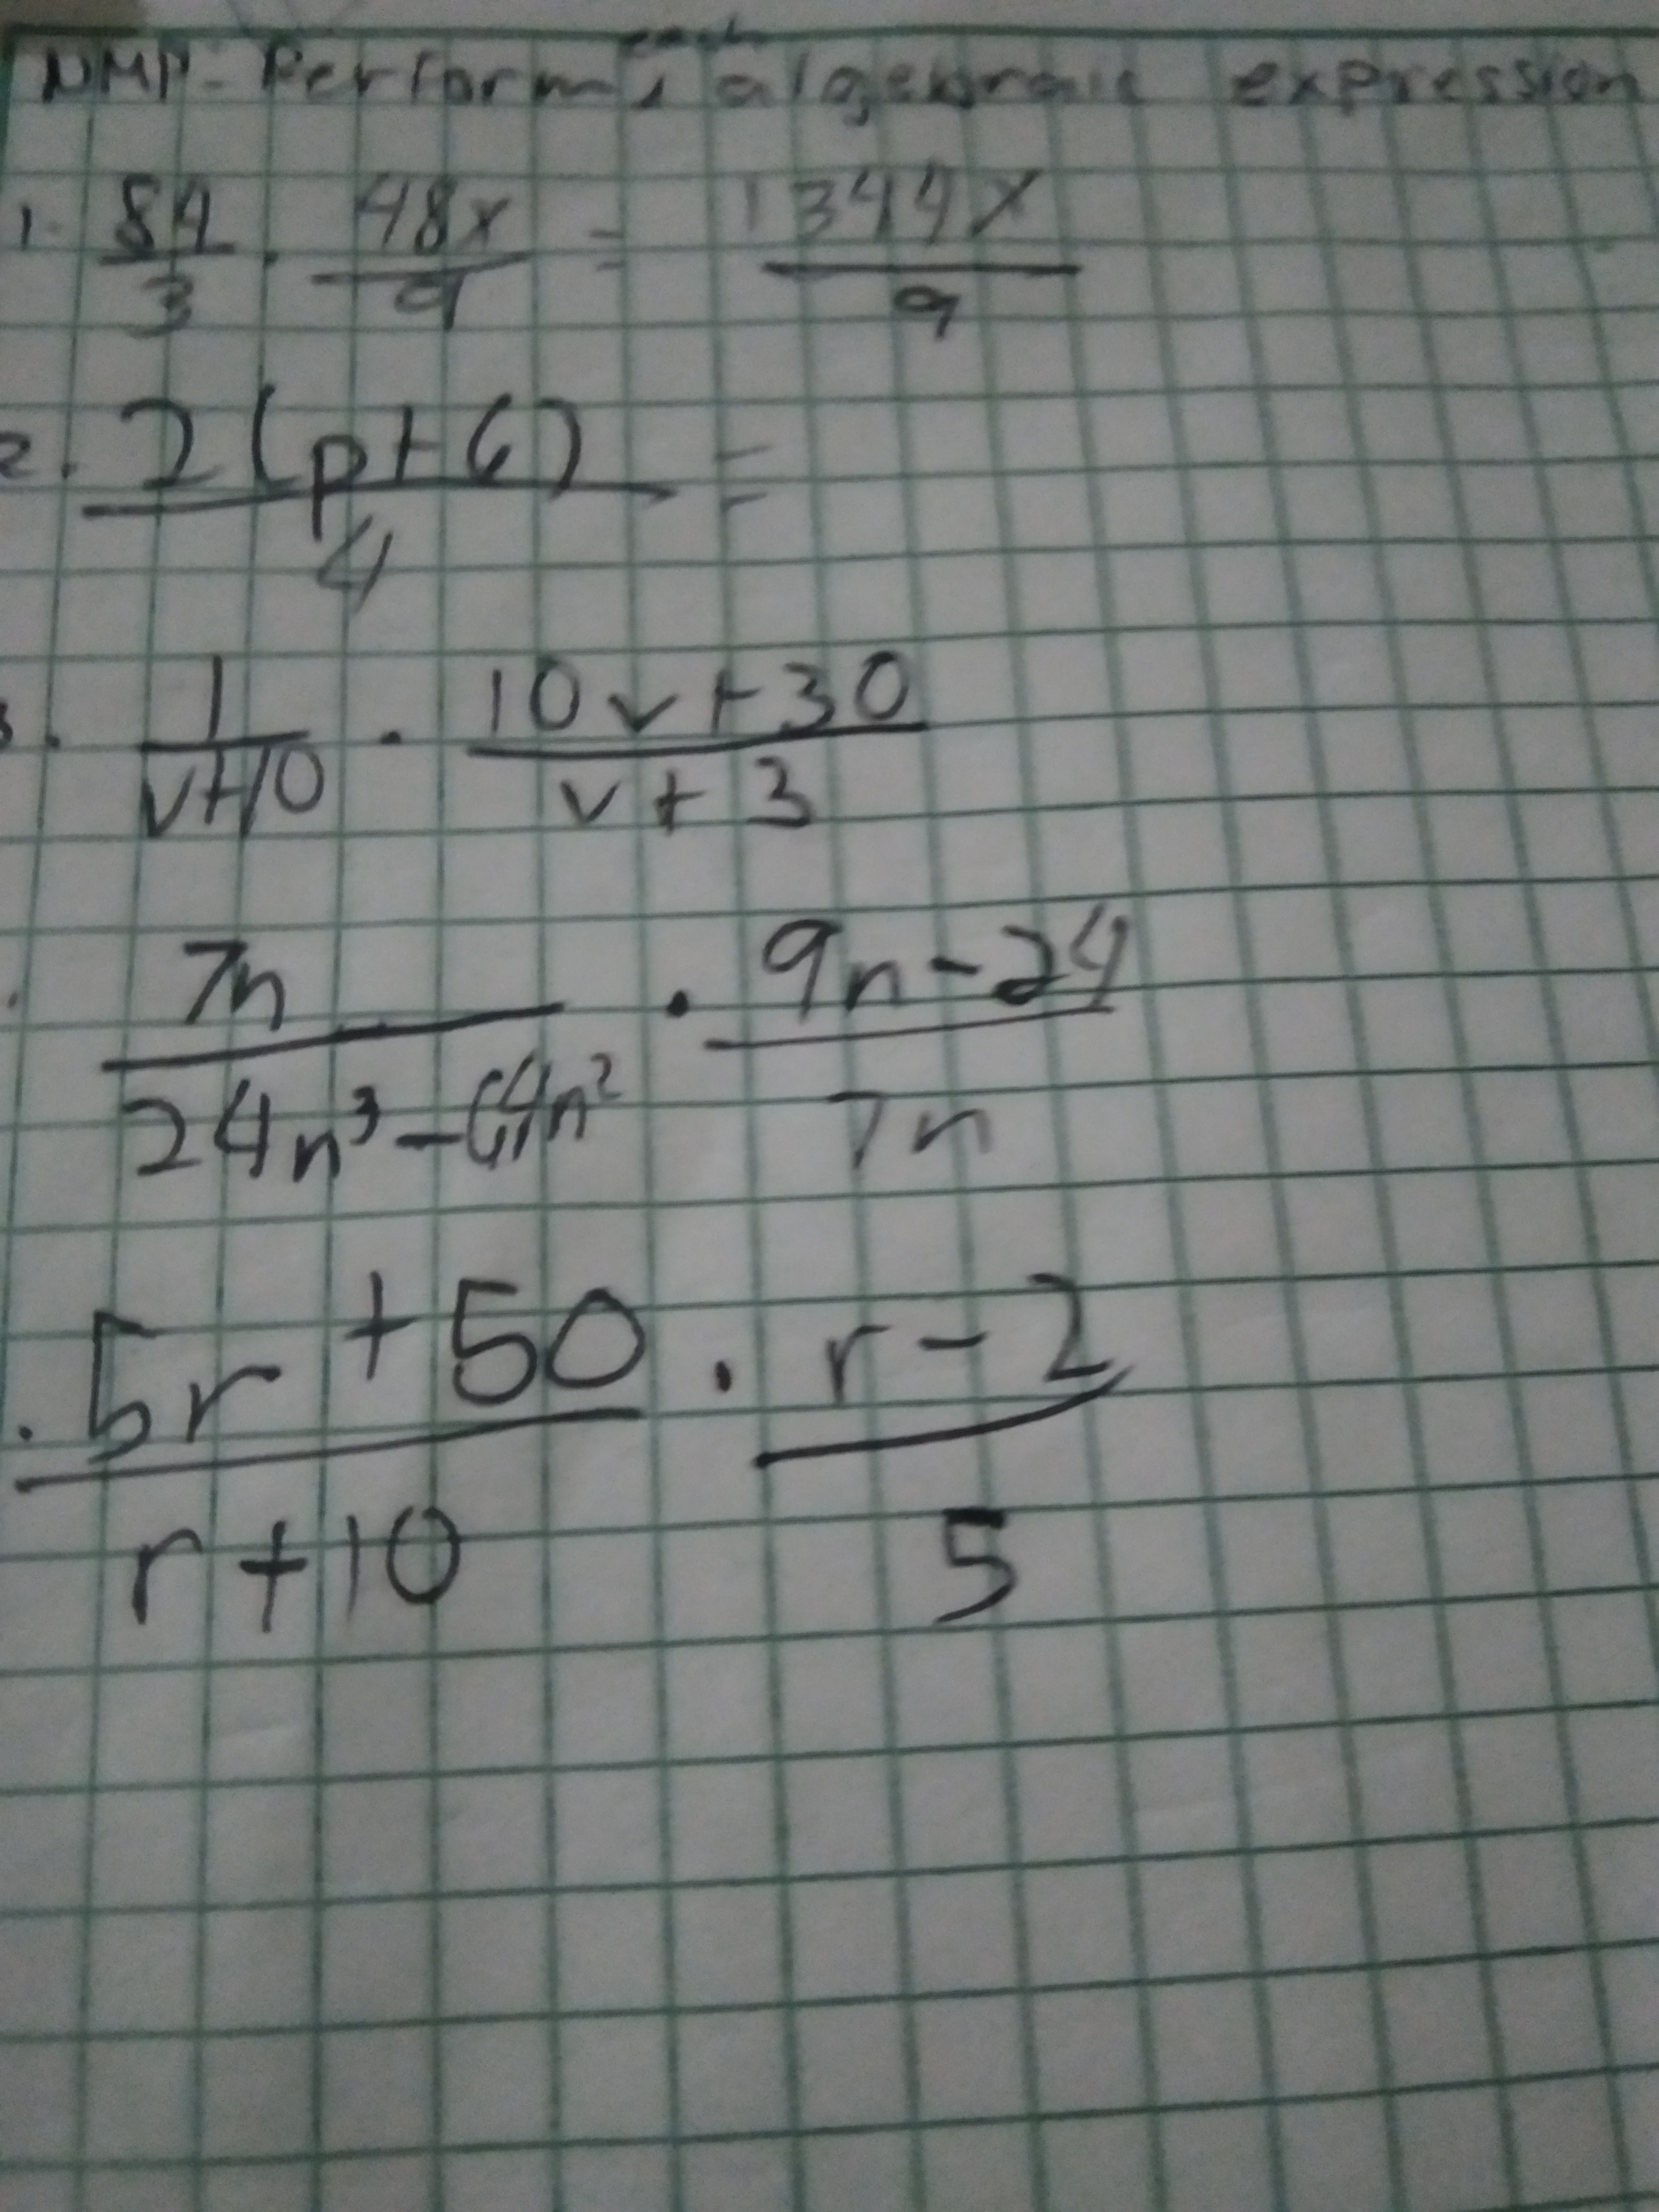 NMP - Perform each algebraic expression
1. 84/3 · 48x/9 = 1344x/9
2. 2(p+6)/4 =
3. 1/(v+10) · (10v+30)/(v+3)
. 7n/(24n³-64n²) · (9n-24)/7n
. (5r+50)/(r+10) · (r-2)/5